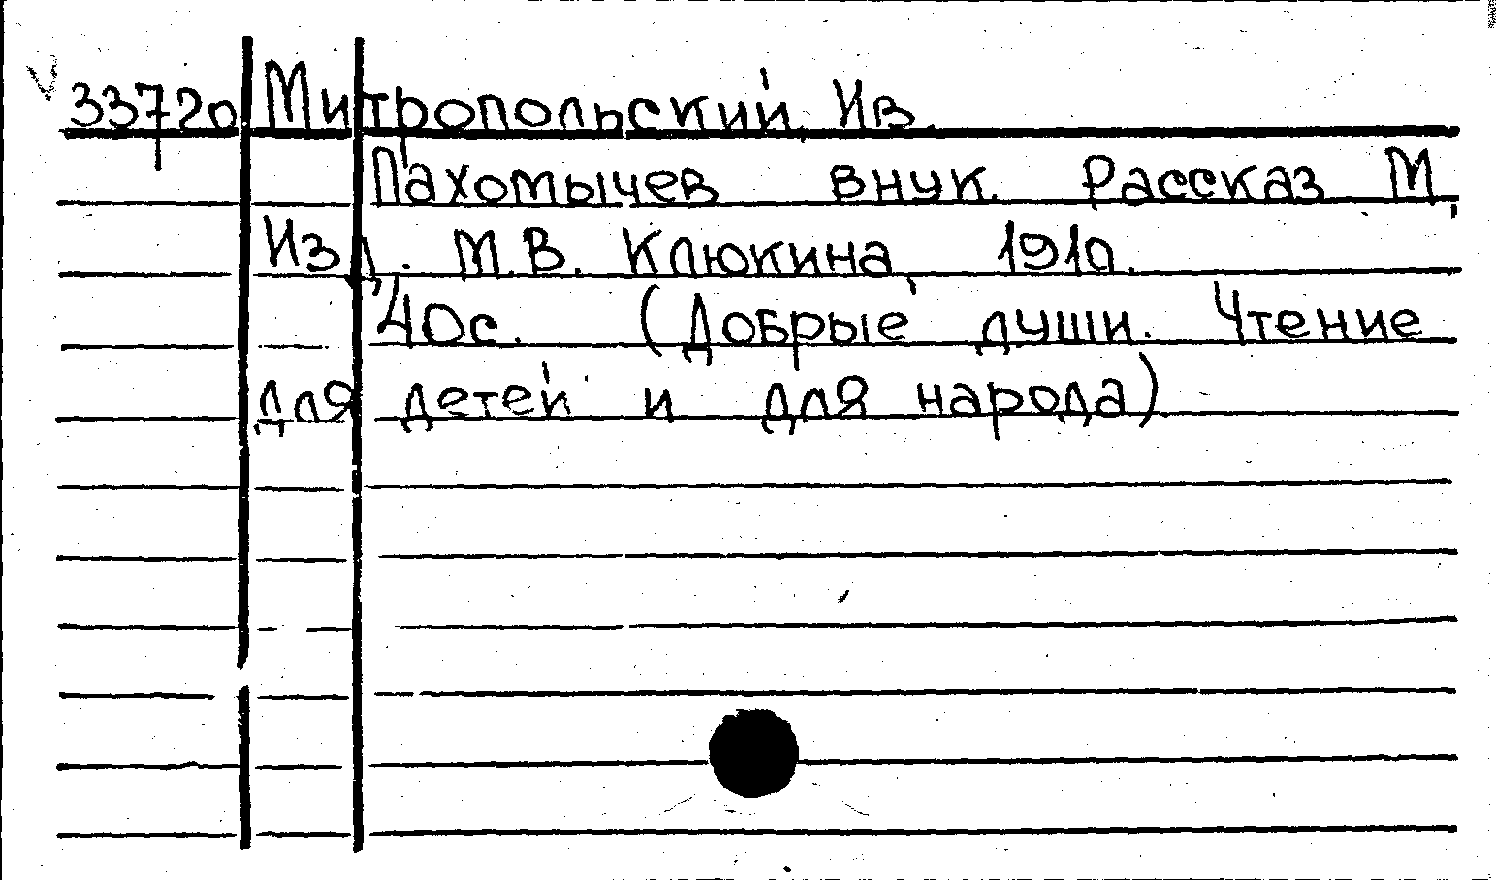 33720 Митропольский, Ив.
Пахомычев внук. Рассказ М.,
Изд. М.В. Клюкина, 1910.
40с. (Добрые души. Чтение
для детей и для народа)